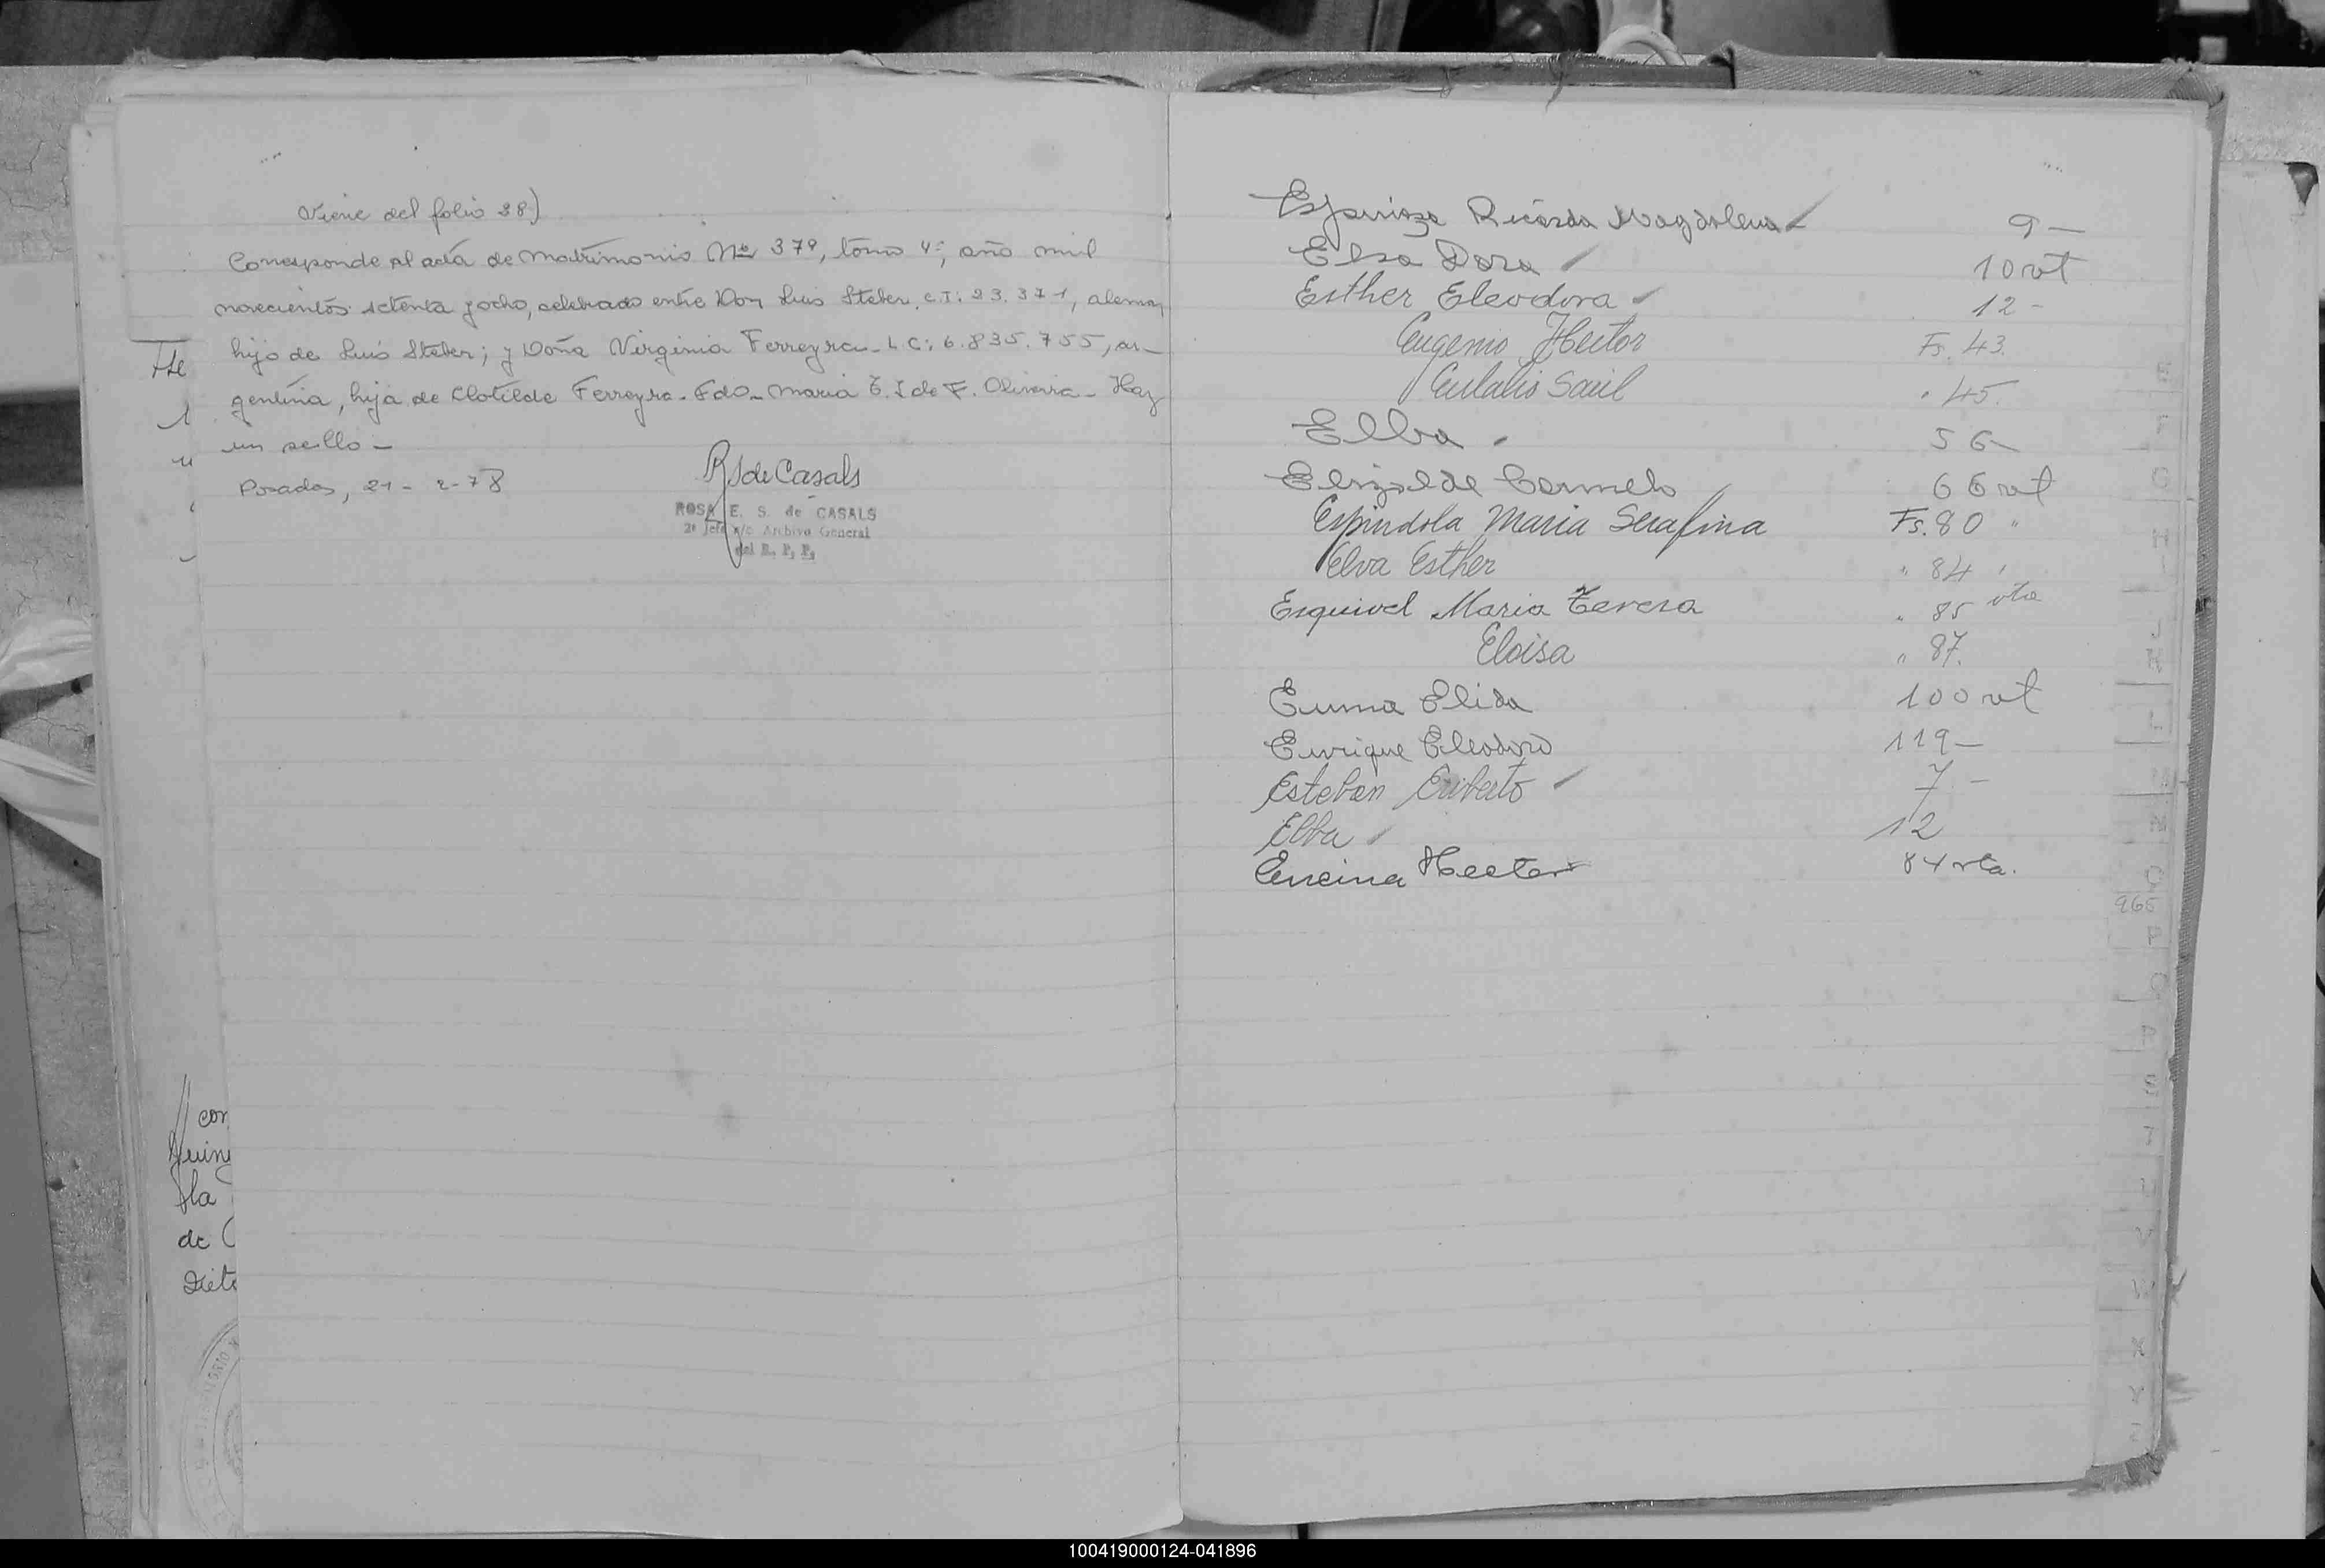 Viene del folio 28)
Corresponde al acta de matrimonio Nº 379, tomo 4º, año mil
novecientos setenta y ocho, celebrado entre Don Luis Steber, C.I: 23.371, aleman,
hijo de Luis Steber; y Doña Virginia Ferreyra - L.C: 6.835.755, ar-
gentina, hija de Clotilde Ferreyra - Fdo - Maria E. I de F. Oliveira - Hay
un sello -
Posadas, 21 - 2 - 78
RSdeCasals
ROSA E. S. de CASALS
2º Jefe a/c Archivo General
del R. P. P.
// con
Quin
fla
de
Diet
Espinoza Ricarda Magdalena 9 -
Elsa Dora 10 vt
Esther Eleodora 12 -
Eugenio Hector Fs. 43.
Eulalio Saúl " 45.
Elba 56 -
Elizalde Carmelo 66 vt
Espindola Maria Serafina Fs. 80 "
Elva Esther " 84 "
Esquivel Maria Teresa " 85 vta
Eloisa " 87.
Emma Elida 100 vt
Enrique Eleodoro 119 -
Esteban Eriberto 7 -
Elba 12
Encina Hector 84 vta.
100419000124-041896